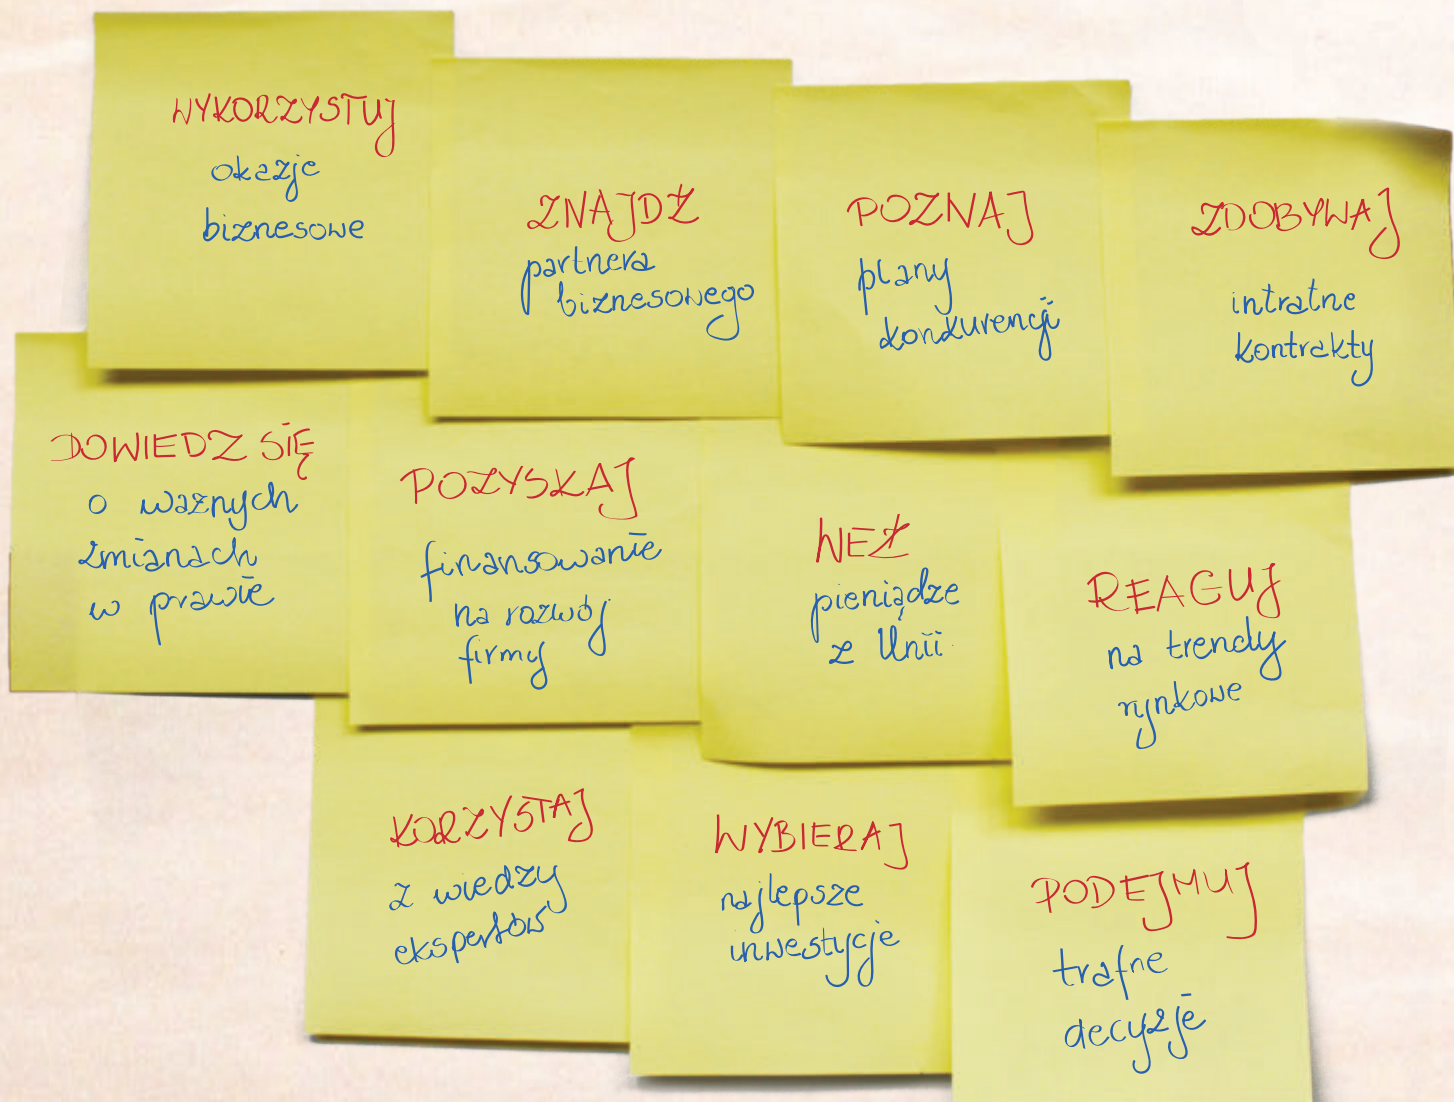 WYKORZYSTUJ
okazje
biznesowe
ZNAJDŹ
partnera
biznesowego
POZNAJ
plany
konkurencji
ZDOBYWAJ
intratne
kontrakty
DOWIEDZ SIĘ
o ważnych
zmianach
w prawie
POZYSKAJ
finansowanie
na rozwój
firmy
WEŹ
pieniądze
z Unii
REAGUJ
na trendy
rynkowe
KORZYSTAJ
z wiedzy
ekspertów
WYBIERAJ
najlepsze
inwestycje
PODEJMUJ
trafne
decyzje